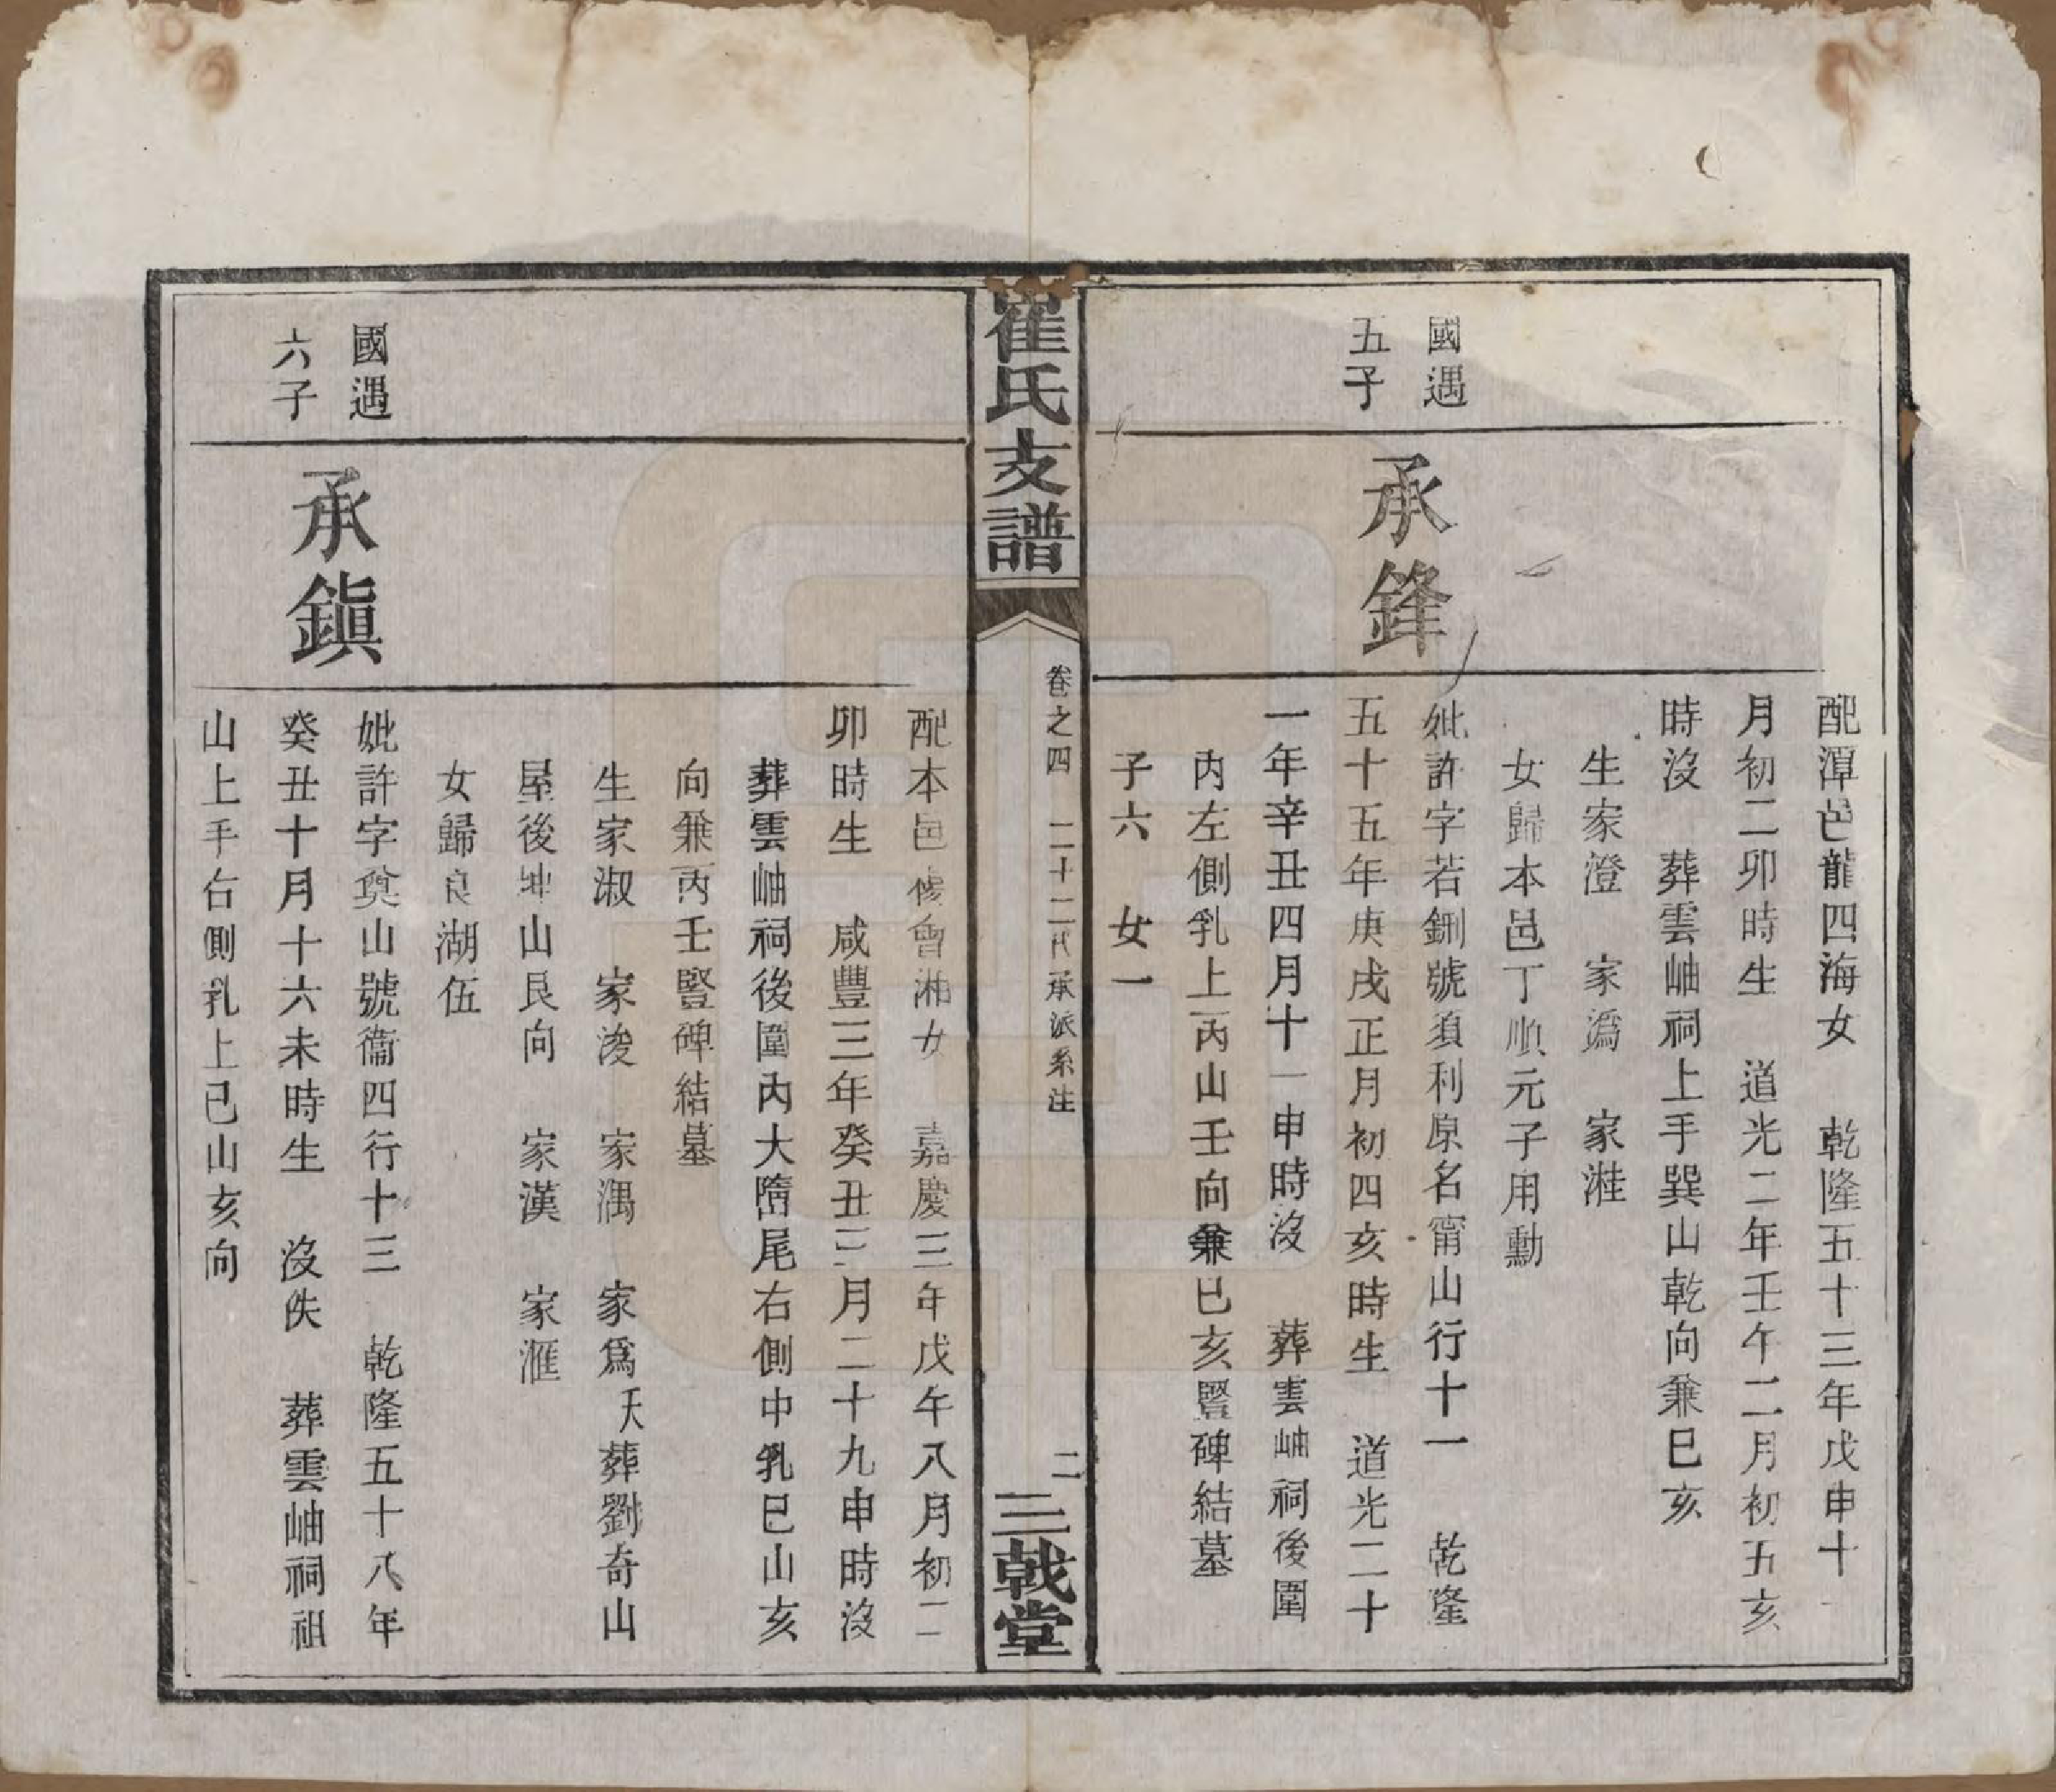 配潭邑龍四海女　乾隆五十三年戊申十
月初二卯時生　道光二年壬午二月初五亥
時沒　葬雲岫祠上手巽山乾向兼巳亥
生家澄　家潙　家溎
女歸本邑丁順元子用勳
國遇
五子
承鋒
妣許字若鉶號須利原名甯山行十一　乾隆
五十五年庚戌正月初四亥時生　道光二十
一年辛丑四月十一申時沒　葬雲岫祠後圍
內左側乳上丙山壬向兼巳亥豎碑結墓
子六　女一
崔氏支譜
卷之四　二十二代承派系注
二
三戟堂
配本邑會湘女　嘉慶三年戊午八月初二
卯時生　咸豐三年癸丑三月二十九申時沒
葬雲岫祠後圍內大隋尾右側中乳巳山亥
向兼丙壬豎碑結墓
生家淑　家浚　家湡　家爲殀葬劉奇山
屋後坤山艮向　家漢　家滙
女歸良湖伍
國遇
六子
承鎮
妣許字奠山號衞四行十三　乾隆五十八年
癸丑十月十六未時生　沒佚　葬雲岫祠祖
山上手右側乳上巳山亥向